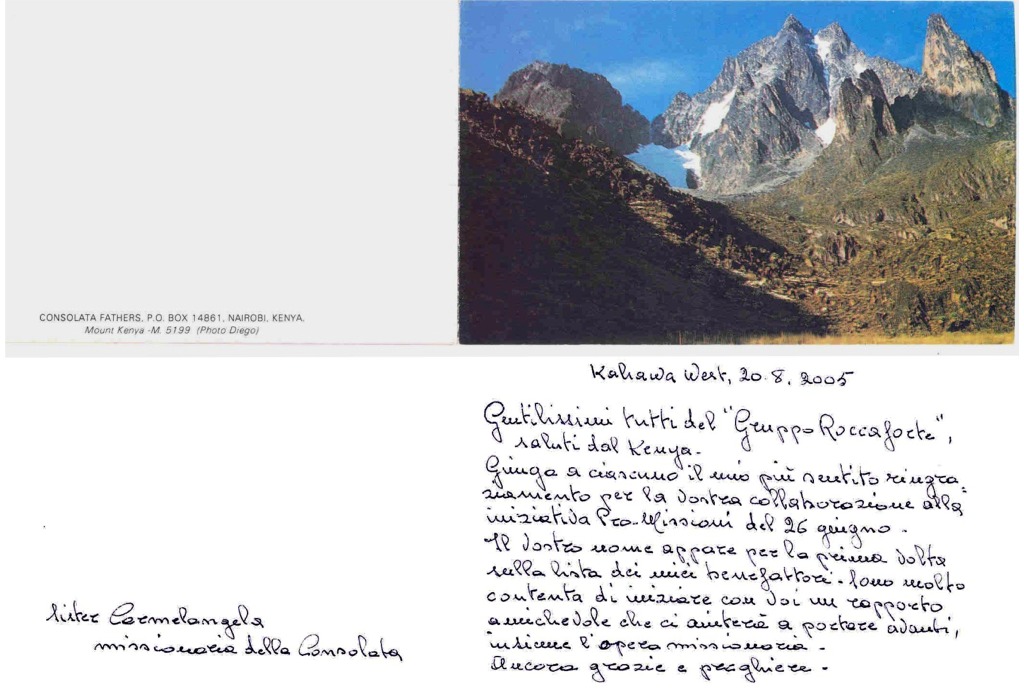 CONSOLATA FATHERS, P.O. BOX 14861, NAIROBI, KENYA.
Mount Kenya -M. 5199 (Photo Diego)
Kahawa West, 20.8.2005
Gentilissimi tutti del "Gruppo Roccaforte",
saluti dal Kenya.
Giunga a ciascuno il mio più sentito ringra=
ziamento per la vostra collaborazione alla
iniziativa Pro-Missioni del 26 giugno.
Il vostro nome appare per la prima volta
sulla lista dei miei benefattori. Sono molto
contenta di iniziare con voi un rapporto
amichevole che ci aiuterà a portare avanti,
insieme l'opera missionaria.
Ancora grazie e preghiere.
Sister Carmelangela
missionaria della Consolata